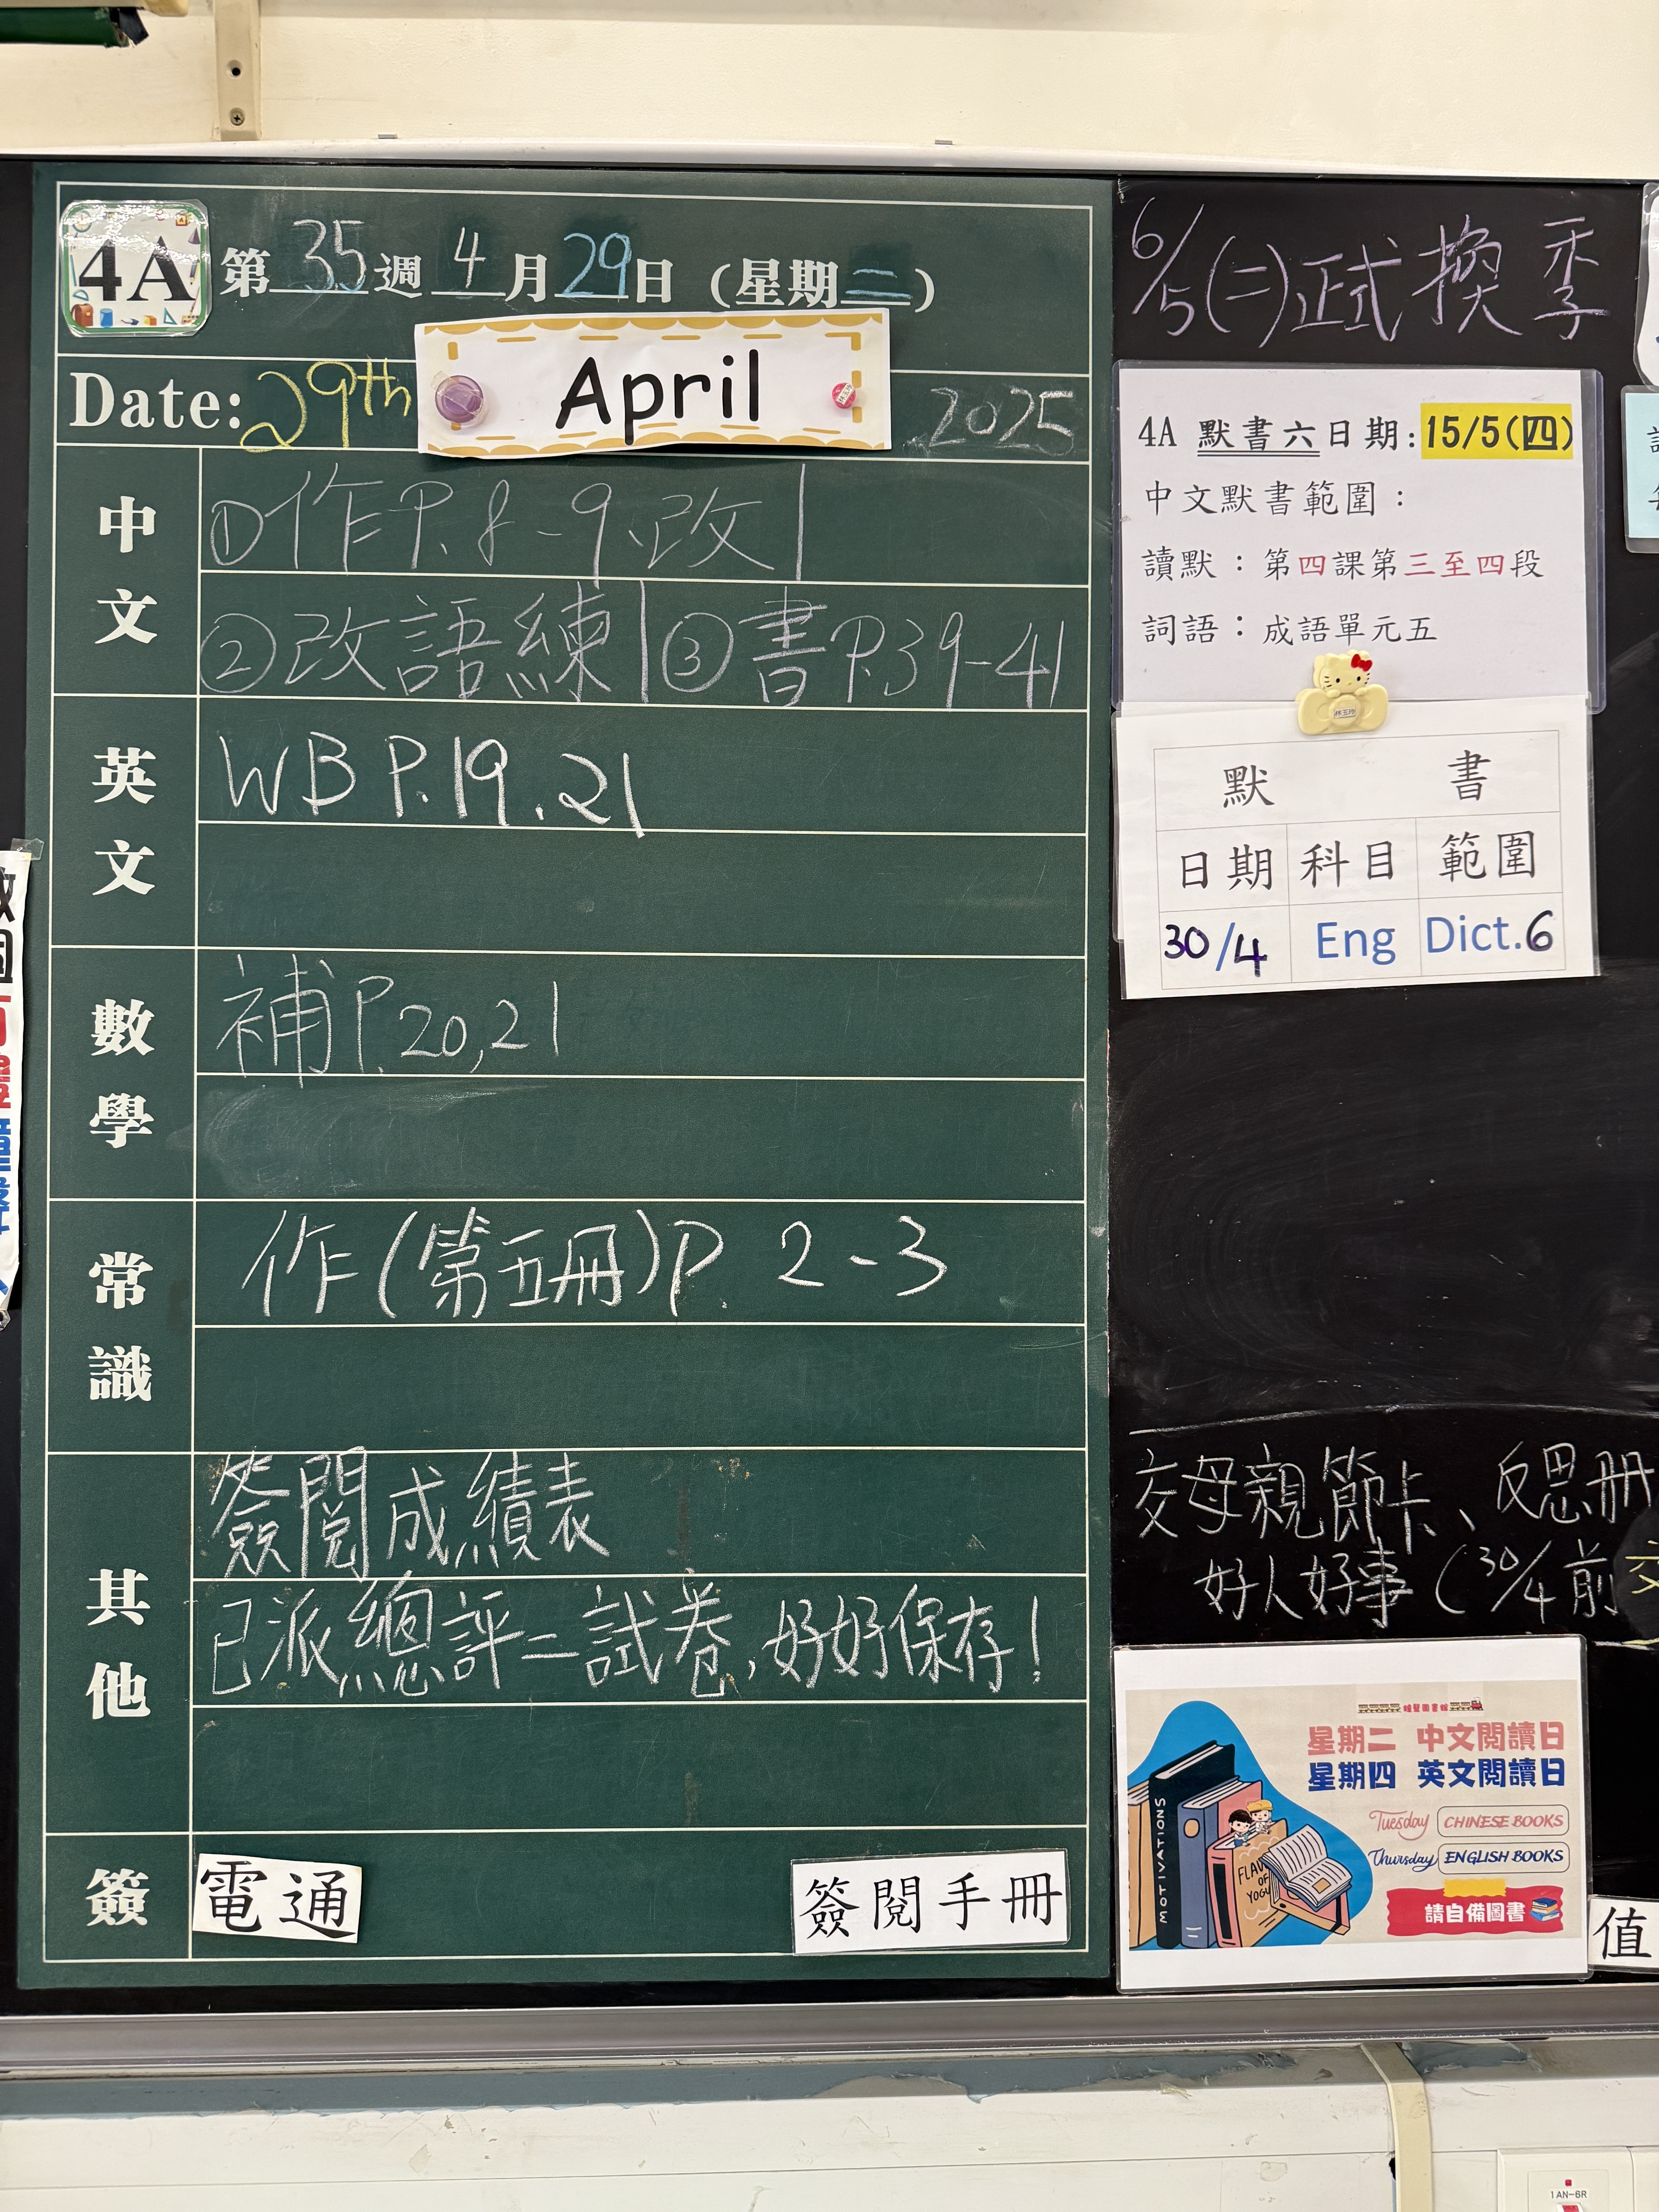 4A
第35週4月29日(星期二)
Date: 29th April 2025
中文
①作P.8-9.改|
②改語練|③書P.39-41
英文
WB P.19.21
數學
補P.20,21
常識
作(第五冊)P. 2-3
其他
簽閱成績表
已派總評二試卷,好好保存!
簽
電通
簽閱手冊
6/5(二)正式換季
4A 默書六日期:15/5(四)
中文默書範圍:
讀默:第四課第三至四段
詞語:成語單元五
默書
日期 科目 範圍
30/4 Eng Dict.6
交母親節卡、反思冊
好人好事(30/4前交
星期二 中文閱讀日
星期四 英文閱讀日
Tuesday CHINESE BOOKS
Thursday ENGLISH BOOKS
請自備圖書
MOTIVATIONS
FLAV
OF
YOGU
值
1AN-6R